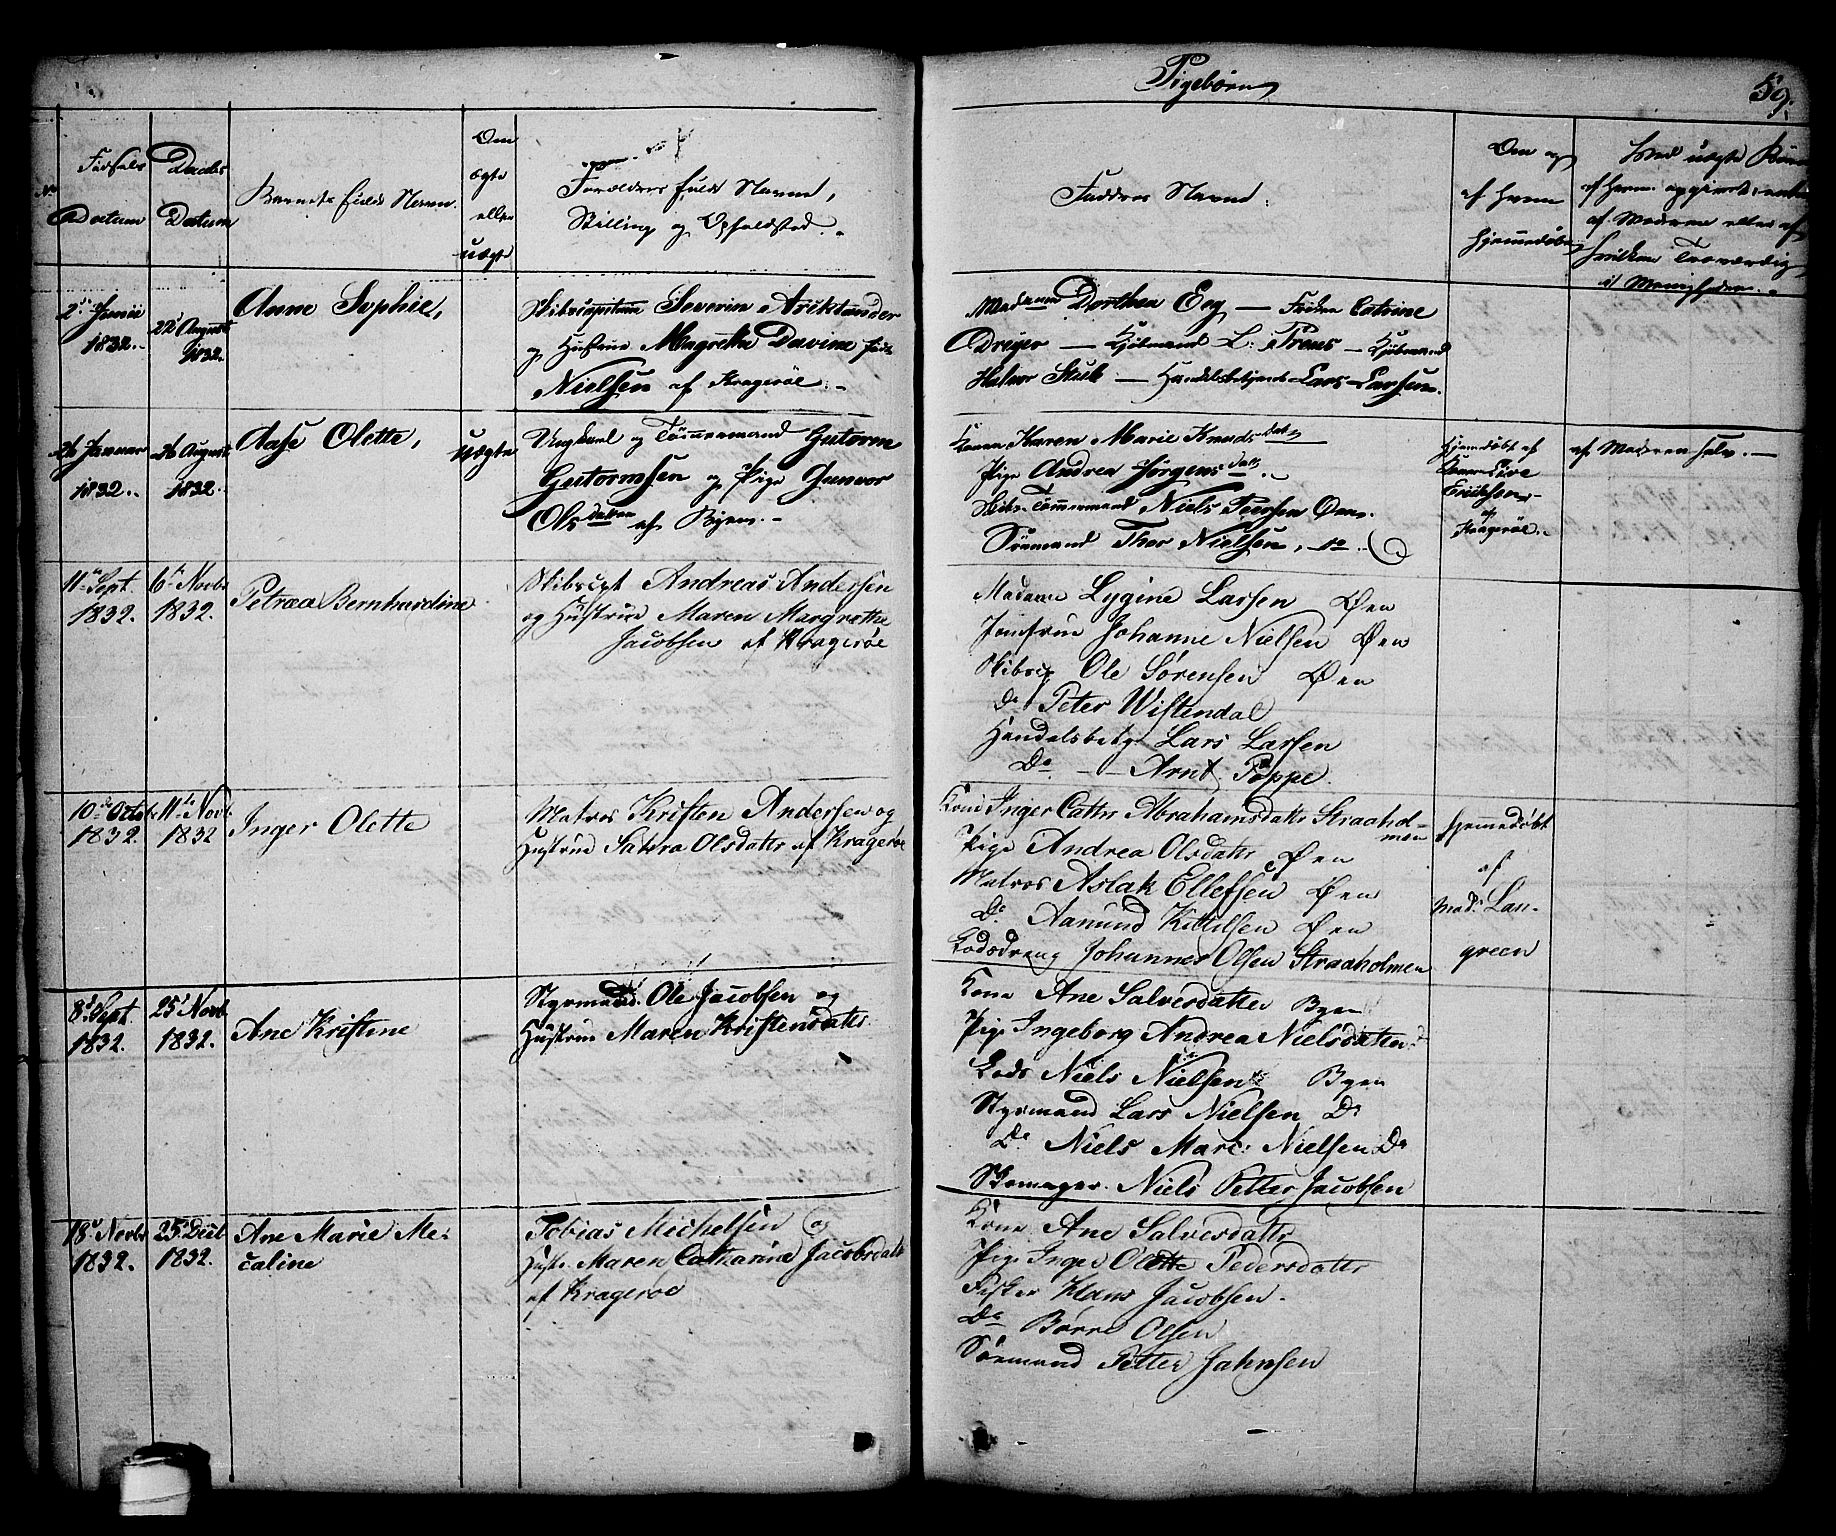 Pigebørn
59.
No
Fødsels
Datum
Daabs
Datum
Barnets fulde Navn.
Om
ægte
eller
uægte
Forældres fulde Navne,
Stilling og Opholdsted.
Faddres Navne:
Om og
af hvem
hjemmedøbt
Ved uægte Børn
af hvem opgivet, enten
af Moderen eller af
hvilken Troværdig
i Menigheden.
2d Junii
1832.
22d August
1832.
Anne Sophie,
Skibscapitain Severin Ariktander
og Hustrue Magrethe Davine, født
Nielsen af Kragerøe.
Madame Dorthea Eeg — Frøken Catrine
Dreyer — Kjøbmand L: Preus — Kjøbmand
Halvor Stub — Handelsbetjent Lars Larsen.
26 Januar
1832.
26 August
1832.
Aase Olette,
Uægte
Ungkarl og Tømmermand Gutorm
Gutormsen og Pige Gunvor
Olsdatter af Byen.
Kone Karen Marie Knudsdatter
Pige Andrea Jørgensdatt.
Skibs-Tømmermand Niels Peersen Øen.
Sømand Thor Nielsen, do.
Hjemmedøbt af
Konen Live
Eriksen
af
Kragerøe.
af Moderen selv.
11te Sept.
1832.
6te Novbr
1832.
Petræa Bernhardine
Skibscpt Andreas Andersen
og Hustrue Maren Margrethe
Jacobsen af Kragerøe
Madame Lygine Larsen Øen
Jomfrue Johanne Nielsen Øen
Skibscp Ole Sørensen Øen
Do Peter Wistendal
Handelsbetj Lars Larsen
Do — Arnt Poppe.
10de Octob
1832.
11te Novb.
1832
Inger Olette
Matros Kristen Andersen og
Hustrue Sahra Olsdatter af Kragerøe
Kone Inger Cathr Abrahamsdattr Straahol-
men
Pige Andrea Olsdatter Øen
Matros Aslak Ellefsen Øen
Do Aamund Kittilsen Øen
Lodsdreng Johannes Olsen Straaholmen
Hjemmedøbt
af
Mad: Lan-
green
8d Sept.
1832.
25d Novb.
1832.
Ane Kristine
Styrmand Ole Jacobsen og
Hustrue Maren Kristensdatter.
Kone Ane Salvesdatter Byen
Pige Ingeborg Andrea Nielsdatter do
Lods Niels Nielsen Byen
Styrmand Lars Nielsen Do
Do Niels Marc: Nielsen Do
Skomager Niels Petter Jacobsen
18d Novbr
1832.
25d Decb.
1832.
Ane Marie Me-
caline
Tobias Michelsen og
Hustr Maren Catharina Jacobsdattr
af Kragerøe
Kone Ane Salvesdatter
Pige Inger Olette Pedersdatter
Fisker Hans Jacobsen.
Do Børre Olsen
Sømand Petter Jahnsen